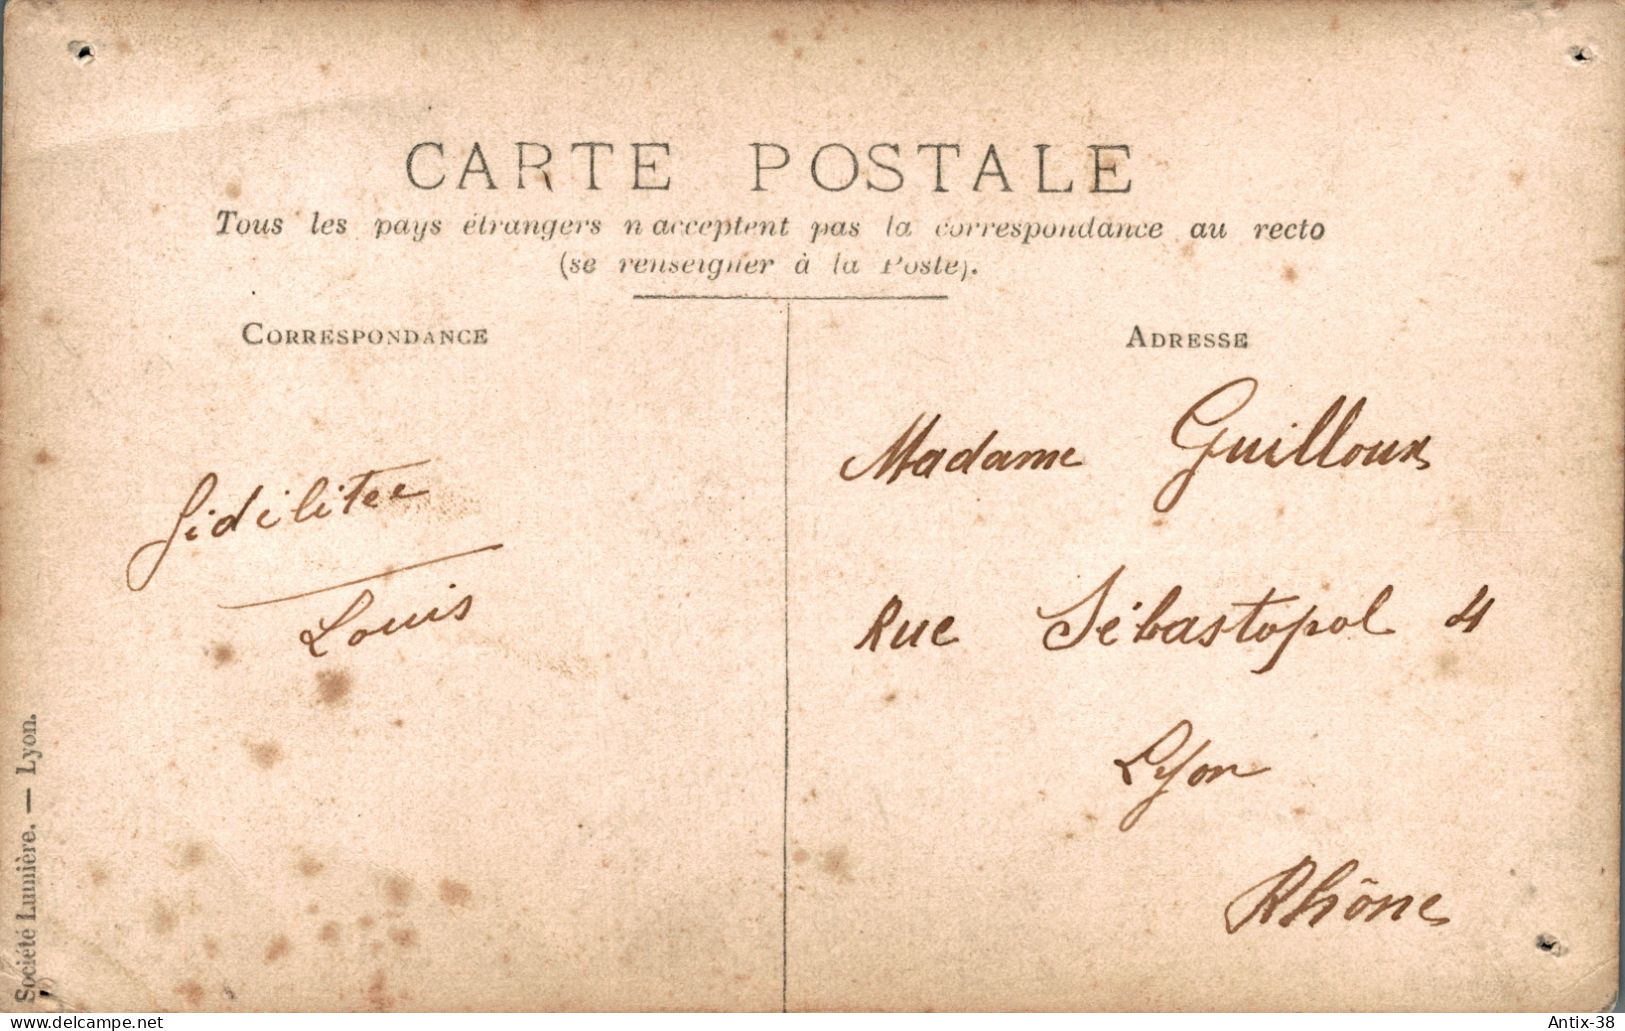 CARTE POSTALE
Tous les pays étrangers n'acceptent pas la correspondance au recto
(se renseigner à la Poste).
CORRESPONDANCE
fidélitee
Louis
ADRESSE
Madame Guilloux
Rue Sébastopol 4
Lyon
Rhône
Société Lumière. — Lyon.
delcampe.net
Antix-38